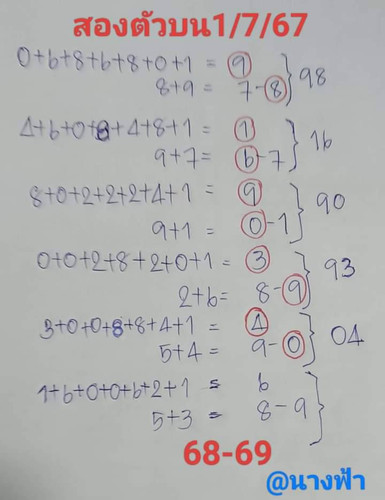 สองตัวบน1/7/67
0+6+8+6+8+0+1 = 9
8+9 = 7-8 } 98
4+6+0+8+4+8+1 = 1
9+7= 6-7 } 16
8+0+2+2+2+4+1 = 9
9+1 = 0-1 } 90
0+0+2+8+2+0+1 = 3
2+6= 8-9 } 93
3+0+0+8+8+4+1 = 4
5+4 = 9-0 } 04
1+6+0+0+6+2+1 = 6
5+3 = 8-9 }
68-69
@นางฟ้า